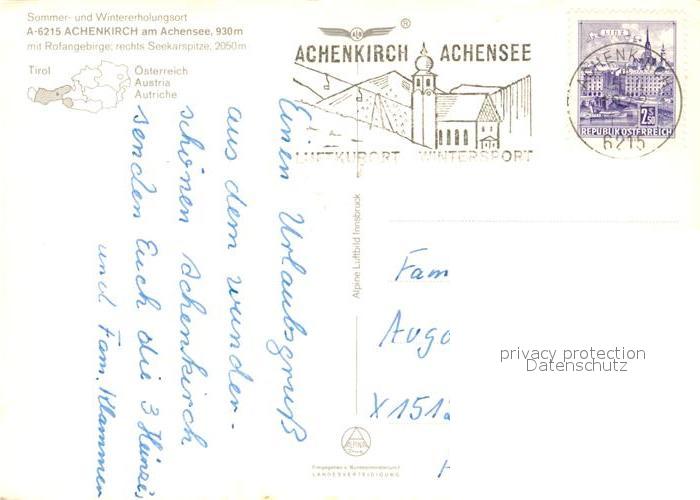 Sommer- und Wintererholungsort
A-6215 ACHENKIRCH am Achensee, 930 m
mit Rofangebirge; rechts Seekarspitze, 2050 m
Tirol
Österreich
Austria
Autriche
Einen Urlaubsgruß
aus dem wunder-
schönen Achenkirch
senden Euch die 3 Heinzes
und Fam. Klammer
®
ACHENKIRCH ACHENSEE
LUFTKURORT WINTERSPORT
LINZ
2.50
REPUBLIK ÖSTERREICH
ACHENKI
6215
Alpine Luftbild Innsbruck
Fam
Augo
X151
privacy protection
Datenschutz
Freigegeben v. Bundesministerium f.
LANDESVERTEIDIGUNG